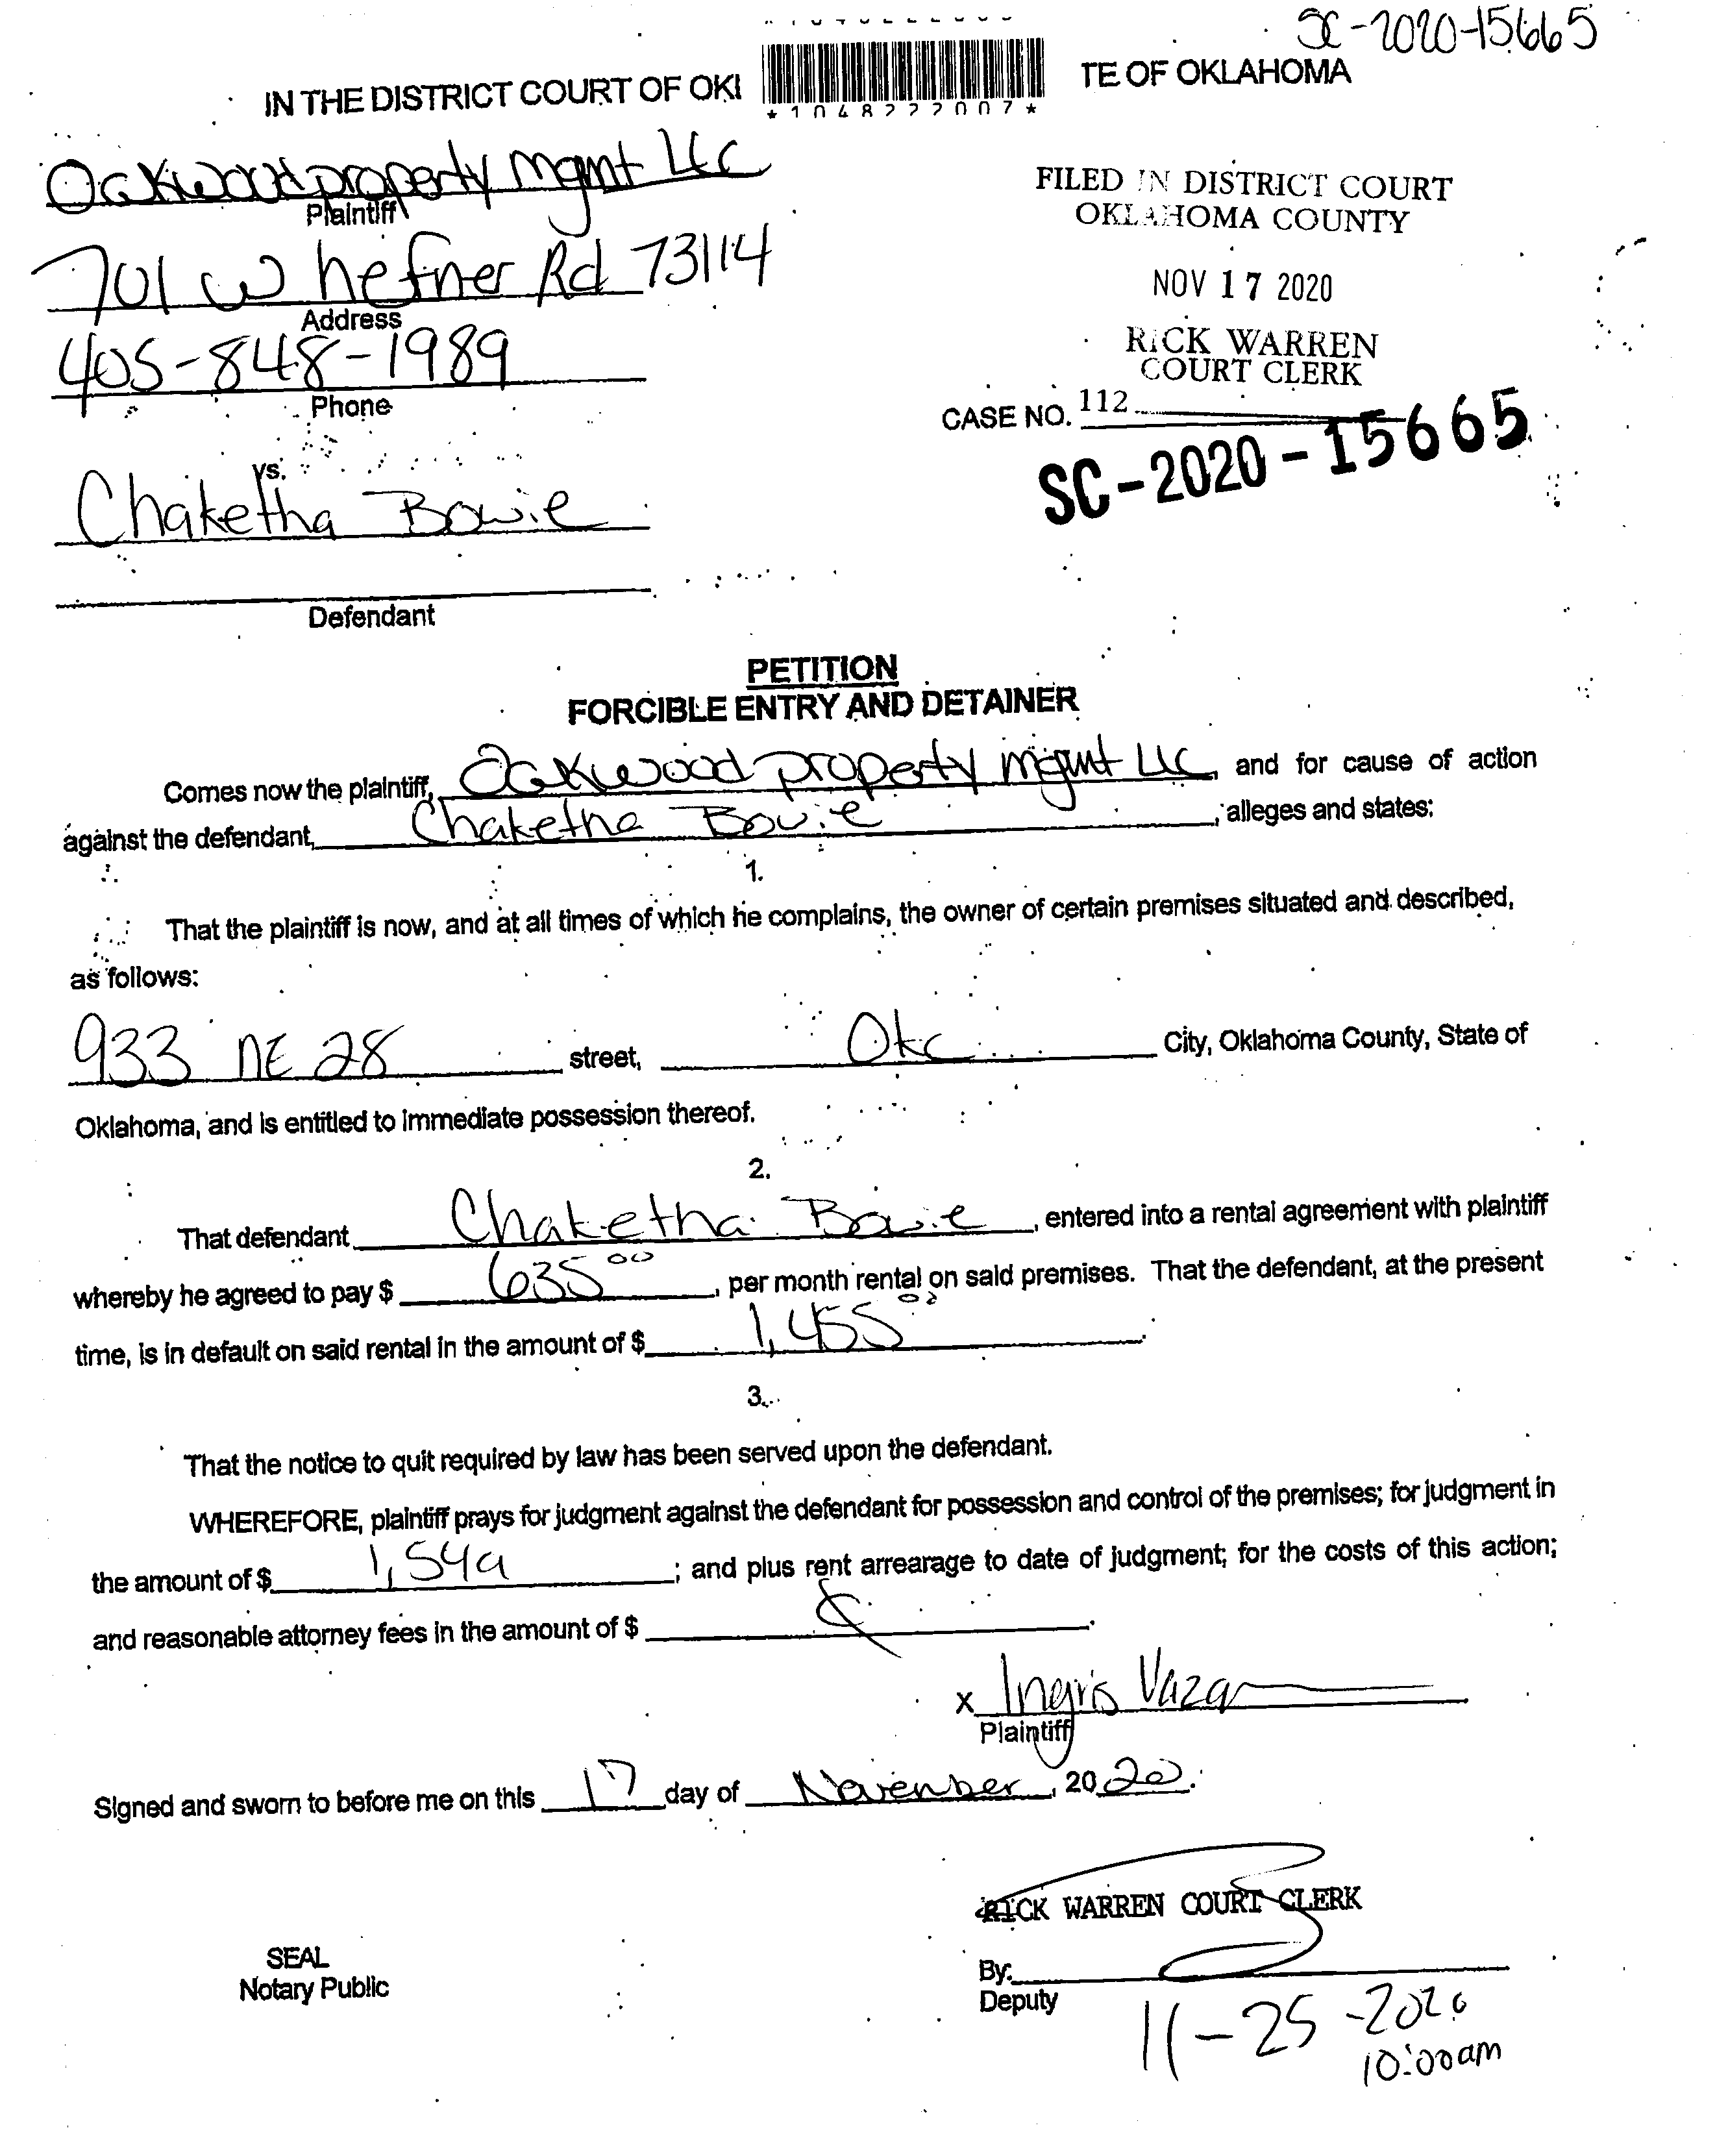 SC-2020-15665
IN THE DISTRICT COURT OF OKL
TE OF OKLAHOMA
*1048222007*
Oakwood property mgmt LLC
Plaintiff
701 W hefner Rd 73114
Address
405-848-1989
Phone
FILED IN DISTRICT COURT
OKLAHOMA COUNTY
NOV 17 2020
RICK WARREN
COURT CLERK
CASE NO. 112
SC-2020-15665
vs.
Chaketha Bowie
Defendant
PETITION
FORCIBLE ENTRY AND DETAINER
Comes now the plaintiff, Oakwood property mgmt LLC, and for cause of action
against the defendant, Chaketha Bowie, alleges and states:
1.
That the plaintiff is now, and at all times of which he complains, the owner of certain premises situated and described,
as follows:
933 NE 28 street, Okc City, Oklahoma County, State of
Oklahoma, and is entitled to immediate possession thereof.
2.
That defendant Chaketha Bowie, entered into a rental agreement with plaintiff
whereby he agreed to pay $ 635 00, per month rental on said premises. That the defendant, at the present
time, is in default on said rental in the amount of $ 1,455 00.
3.
That the notice to quit required by law has been served upon the defendant.
WHEREFORE, plaintiff prays for judgment against the defendant for possession and control of the premises; for judgment in
the amount of $ 1,549; and plus rent arrearage to date of judgment; for the costs of this action;
and reasonable attorney fees in the amount of $
x Ingris
Plaintiff
Signed and sworn to before me on this 17 day of November, 2020.
RICK WARREN COURT CLERK
SEAL
Notary Public
By:
Deputy
11-25-2020
10:00am